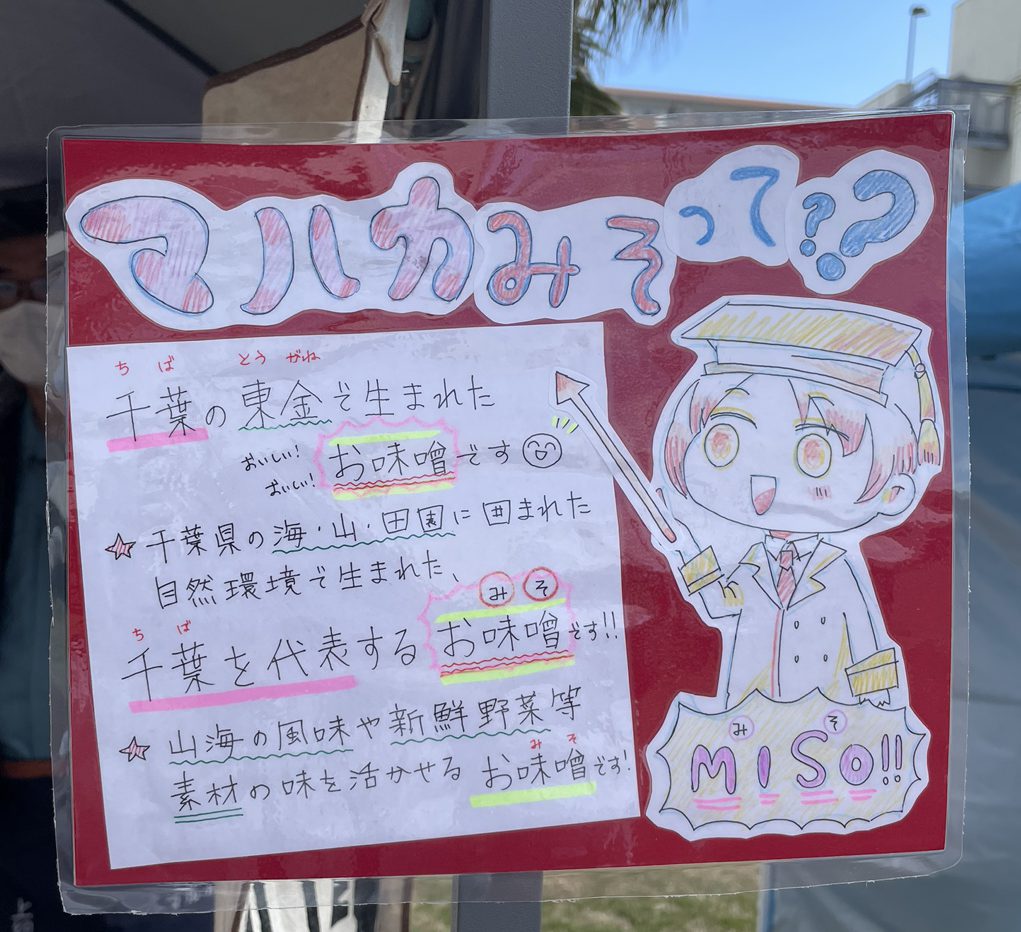 マハカみそって??
ちば とうがね
千葉の東金で生まれた
おいしい!
おいしい!
お味噌です
千葉県の海・山・田園に囲まれた
自然環境で生まれた、
みそ
ちば
千葉を代表するお味噌です!!
山海の風味や新鮮野菜等
みそ
素材の味を活かせるお味噌です!
みそ
MISO!!